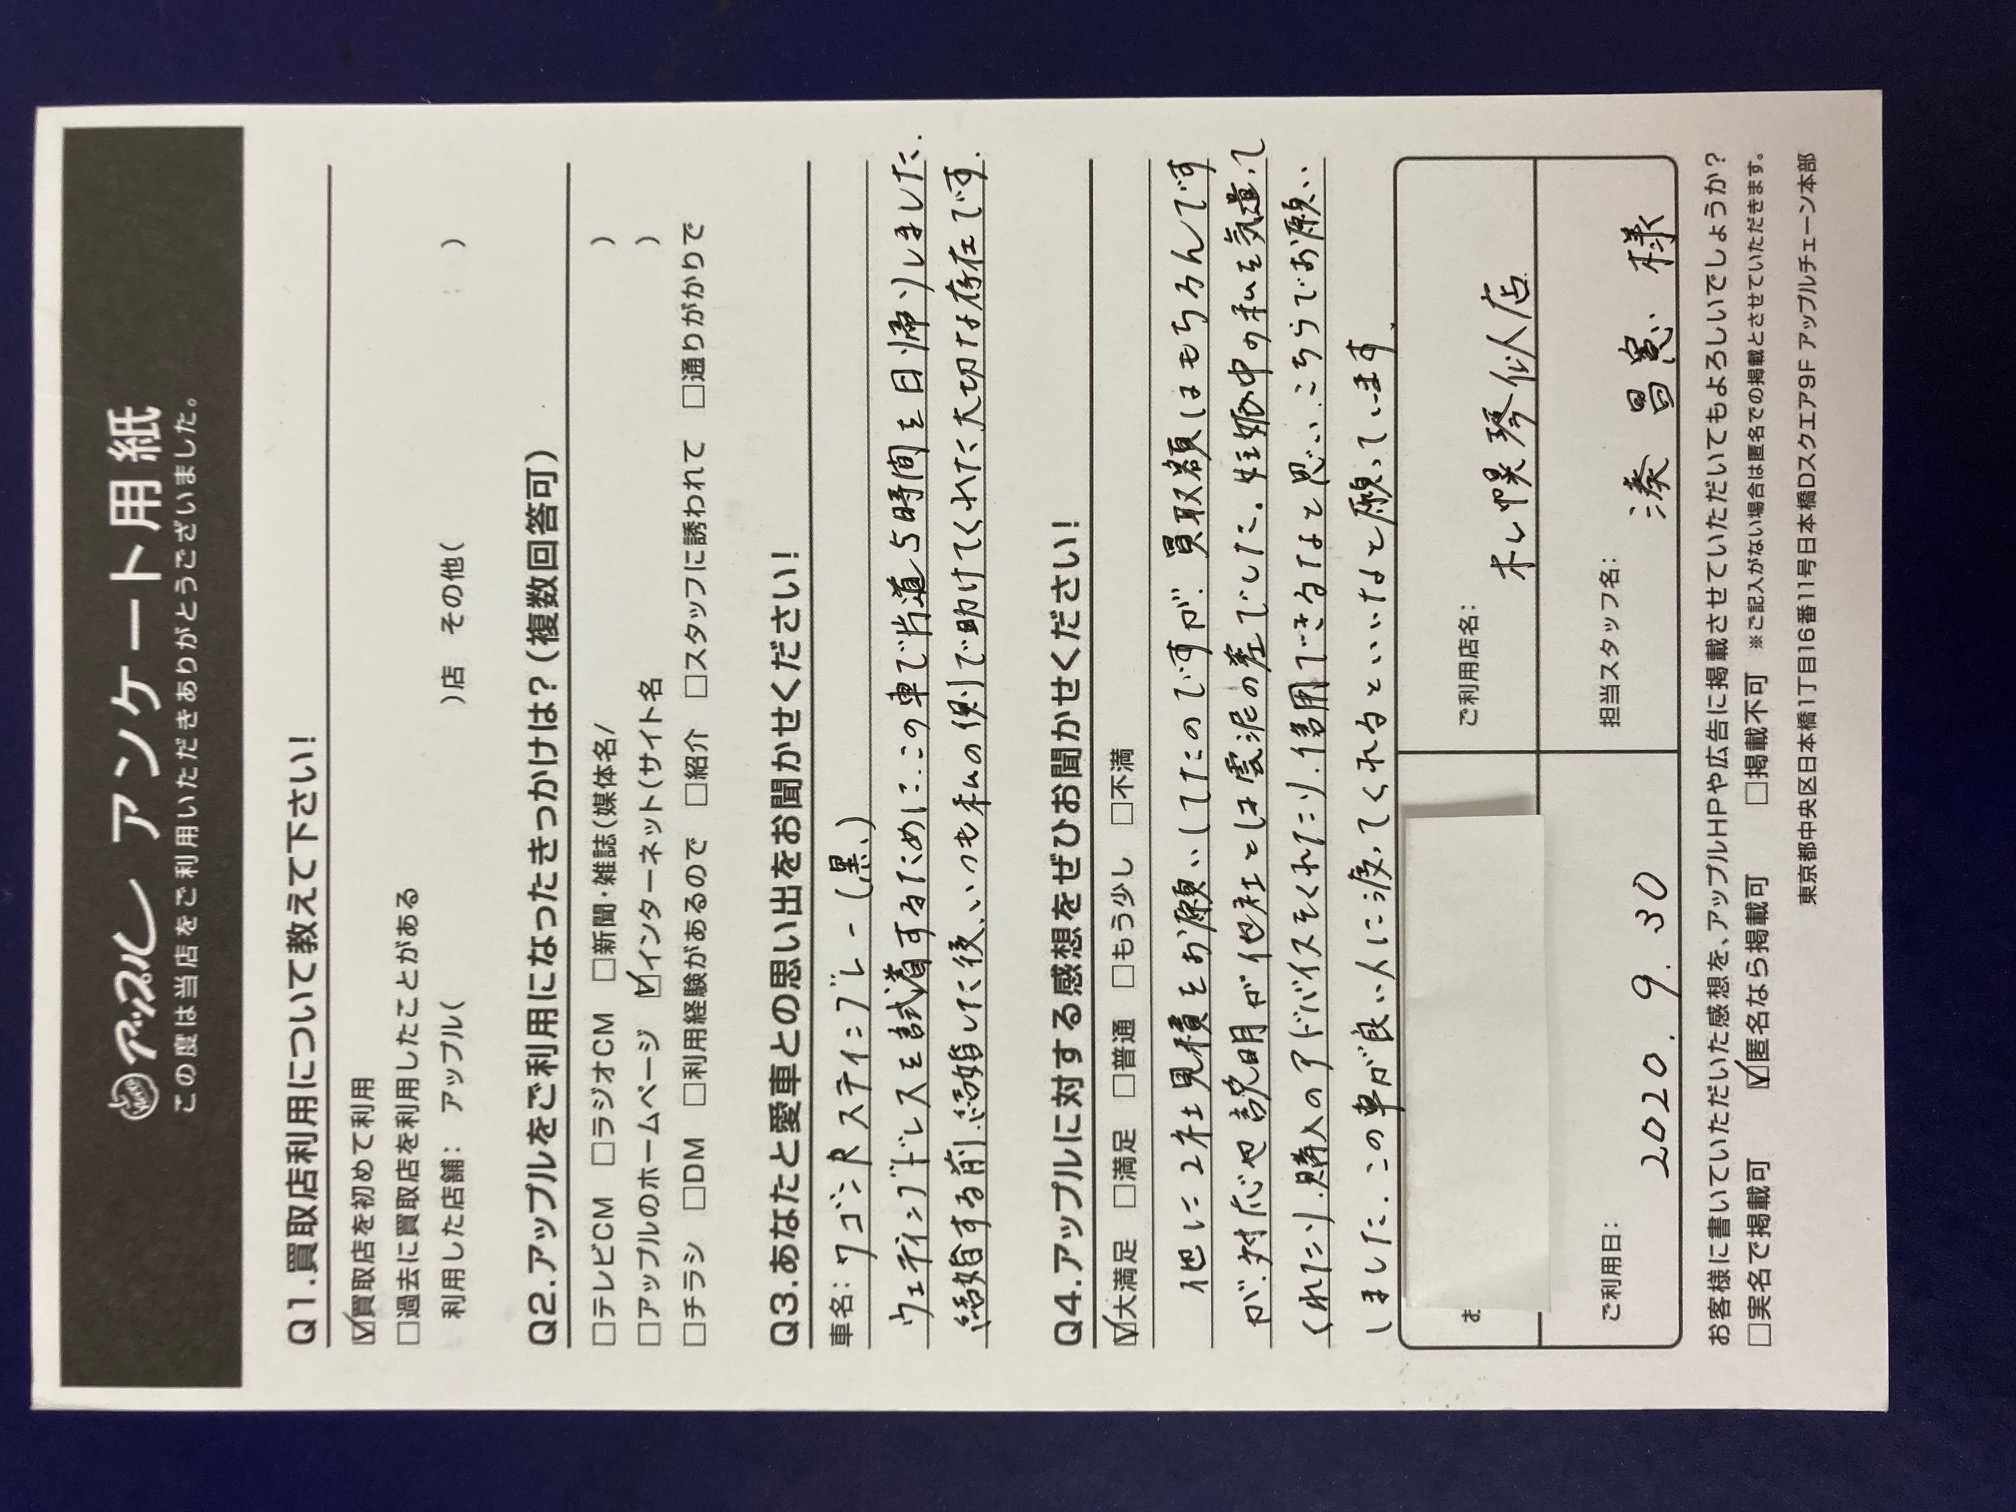 アップル アンケート用紙
この度は当店をご利用いただきありがとうございました。
Q1.買取店利用について教えて下さい!
☑買取店を初めて利用
□過去に買取店を利用したことがある
利用した店舗: アップル( )店 その他( )
Q2.アップルをご利用になったきっかけは?(複数回答可)
□テレビCM □ラジオCM □新聞・雑誌(媒体名/ )
□アップルのホームページ ☑インターネット(サイト名 )
□チラシ □DM □利用経験があるので □紹介 □スタッフに誘われて □通りがかりで
Q3.あなたと愛車との思い出をお聞かせください!
車名: ワゴンR スティングレー(黒)
ウェディングドレスを試着するために、この車で片道5時間を日帰りしました。
結婚する前、結婚した後、いつも私の側で助けてくれた大切な存在です。
Q4.アップルに対する感想をぜひお聞かせください!
☑大満足 □満足 □普通 □もう少し □不満
他に2社見積をお願いしてたのですが、買取額はもちろんです
が、対応や説明が他社とは雲泥の差でした。妊娠中の私を気遣って
くれたり、購入のアドバイスをくれたり、信用できるなと思い、こちらでお願い
しました。この車が良い人に渡ってくれるといいなと願っています。
お
ご利用店名: 札幌琴似店
ご利用日: 2020. 9. 30
担当スタッフ名: 湊 昌憲 様
お客様に書いていただいた感想を、アップルHPや広告に掲載させていただいてもよろしいでしょうか?
□実名で掲載可 ☑匿名なら掲載可 □掲載不可 ※ご記入がない場合は匿名での掲載とさせていただきます。
東京都中央区日本橋1丁目16番11号日本橋Dスクエア9F アップルチェーン本部